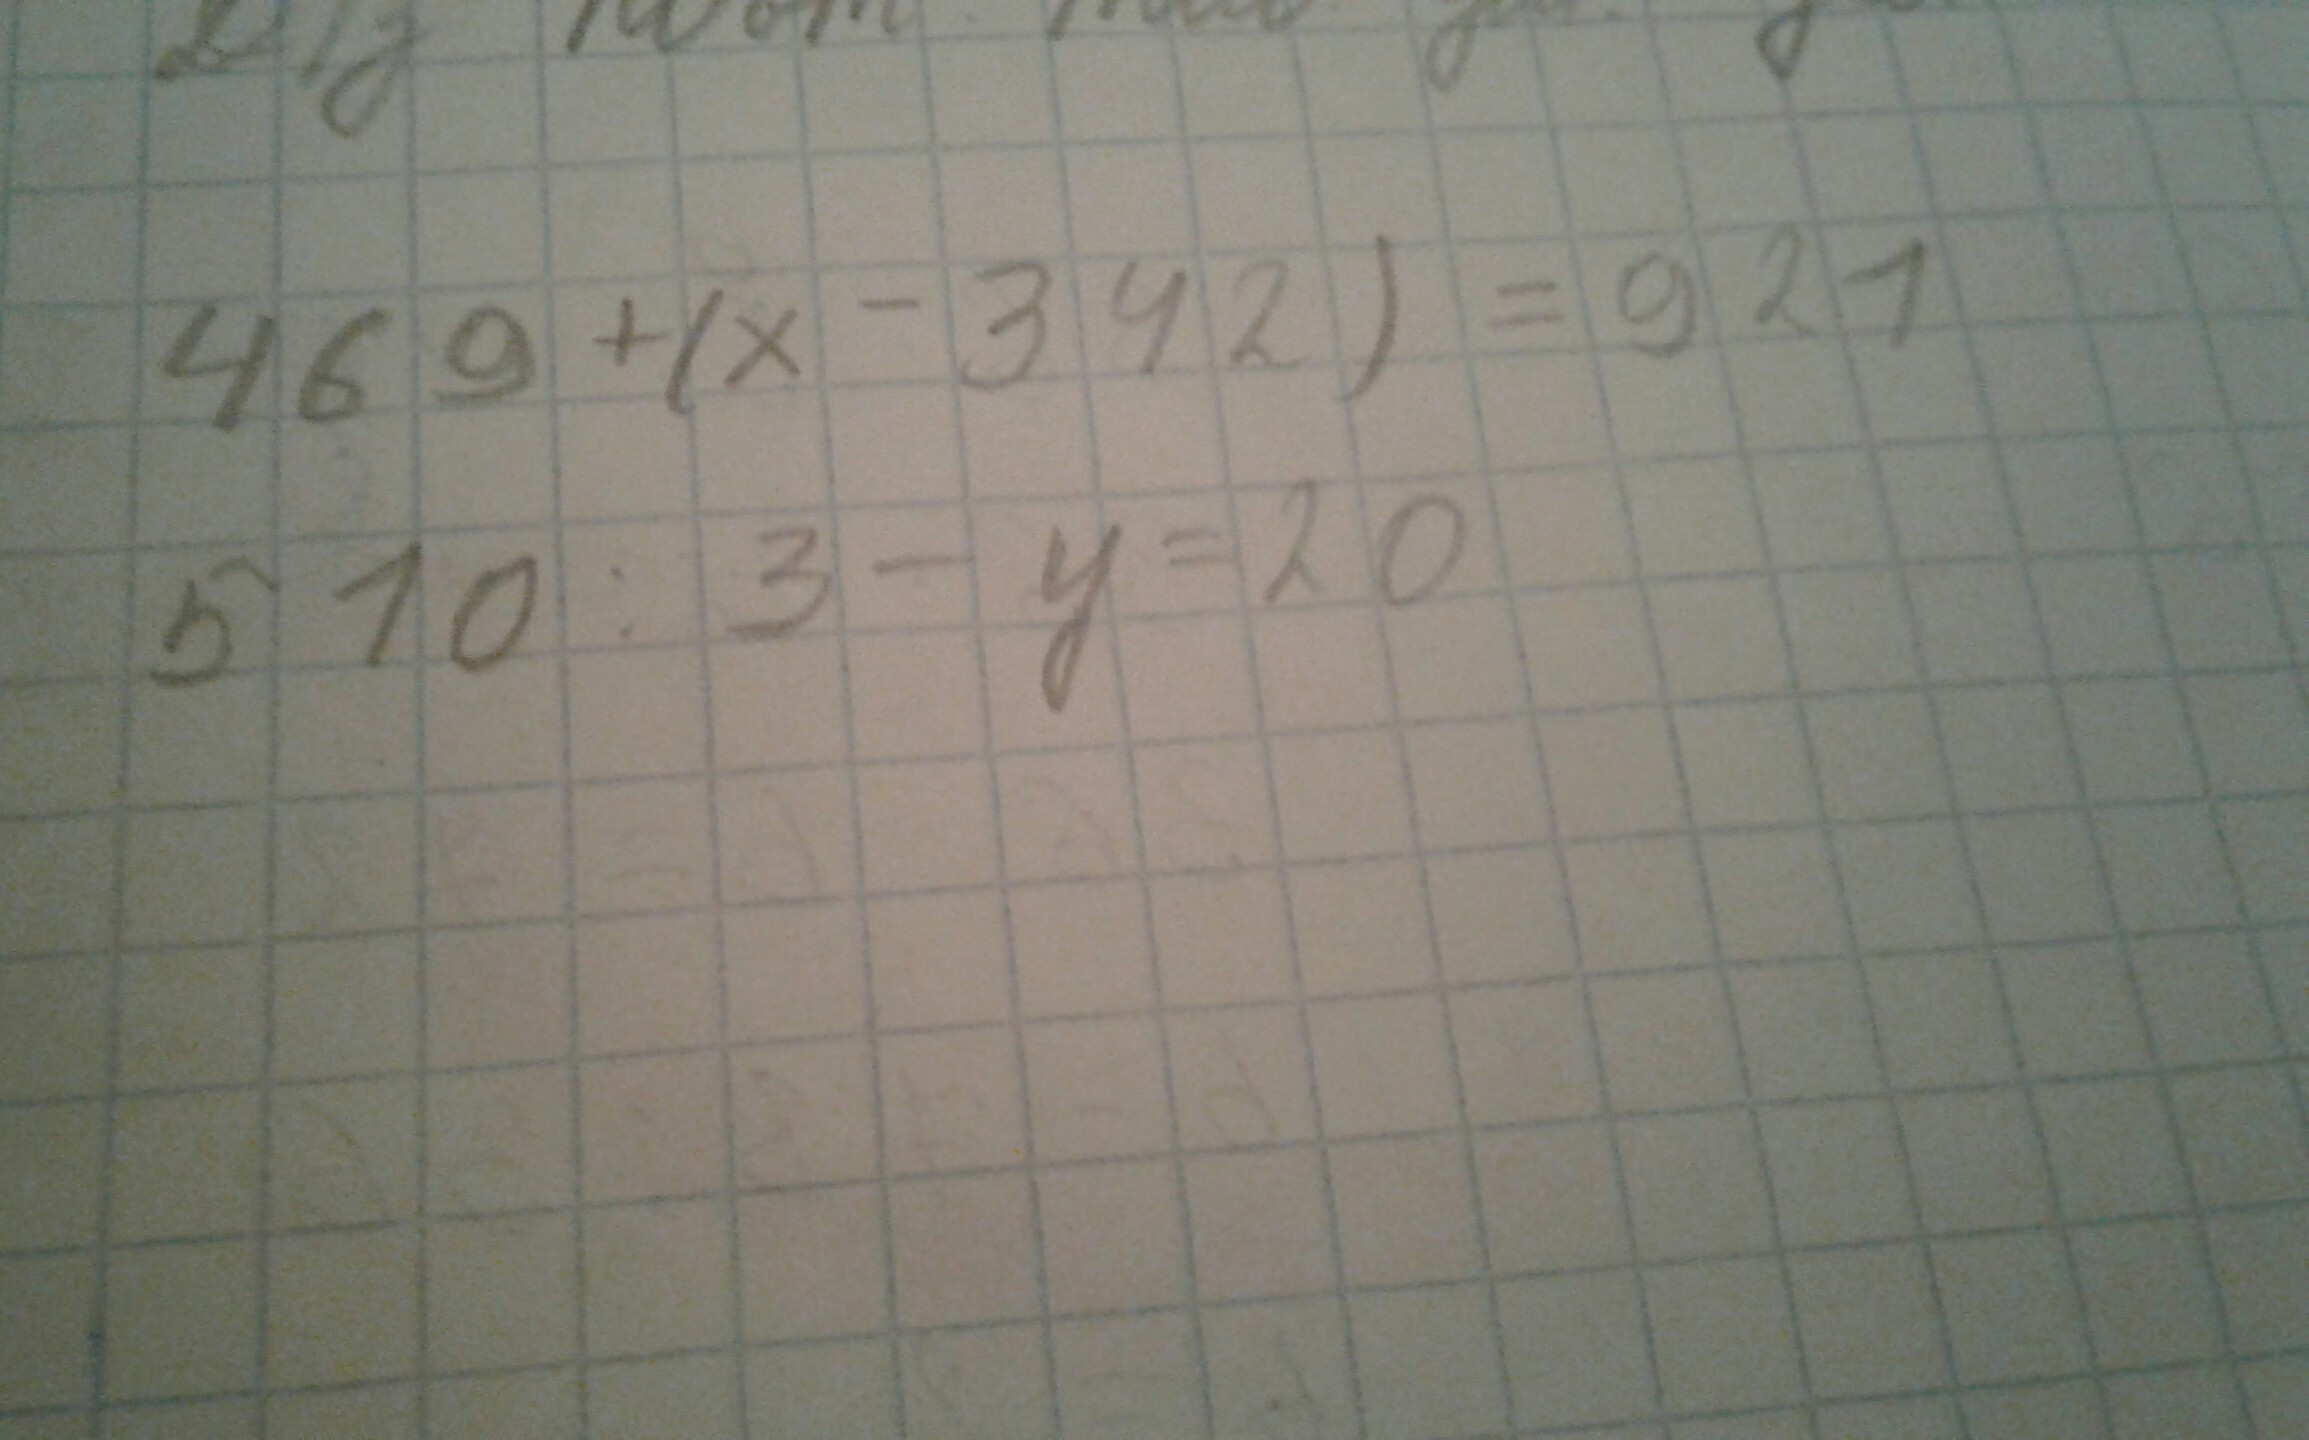 Д/з
469+(x-342)=921
510:3-y=20